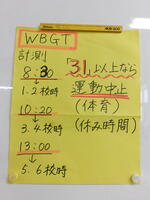 WBGT
計測
8:30
↓
1.2校時
10:20
↓
3.4校時
13:00
↓
5.6校時
「31以上なら
運動中止
(体育)
(休み時間)